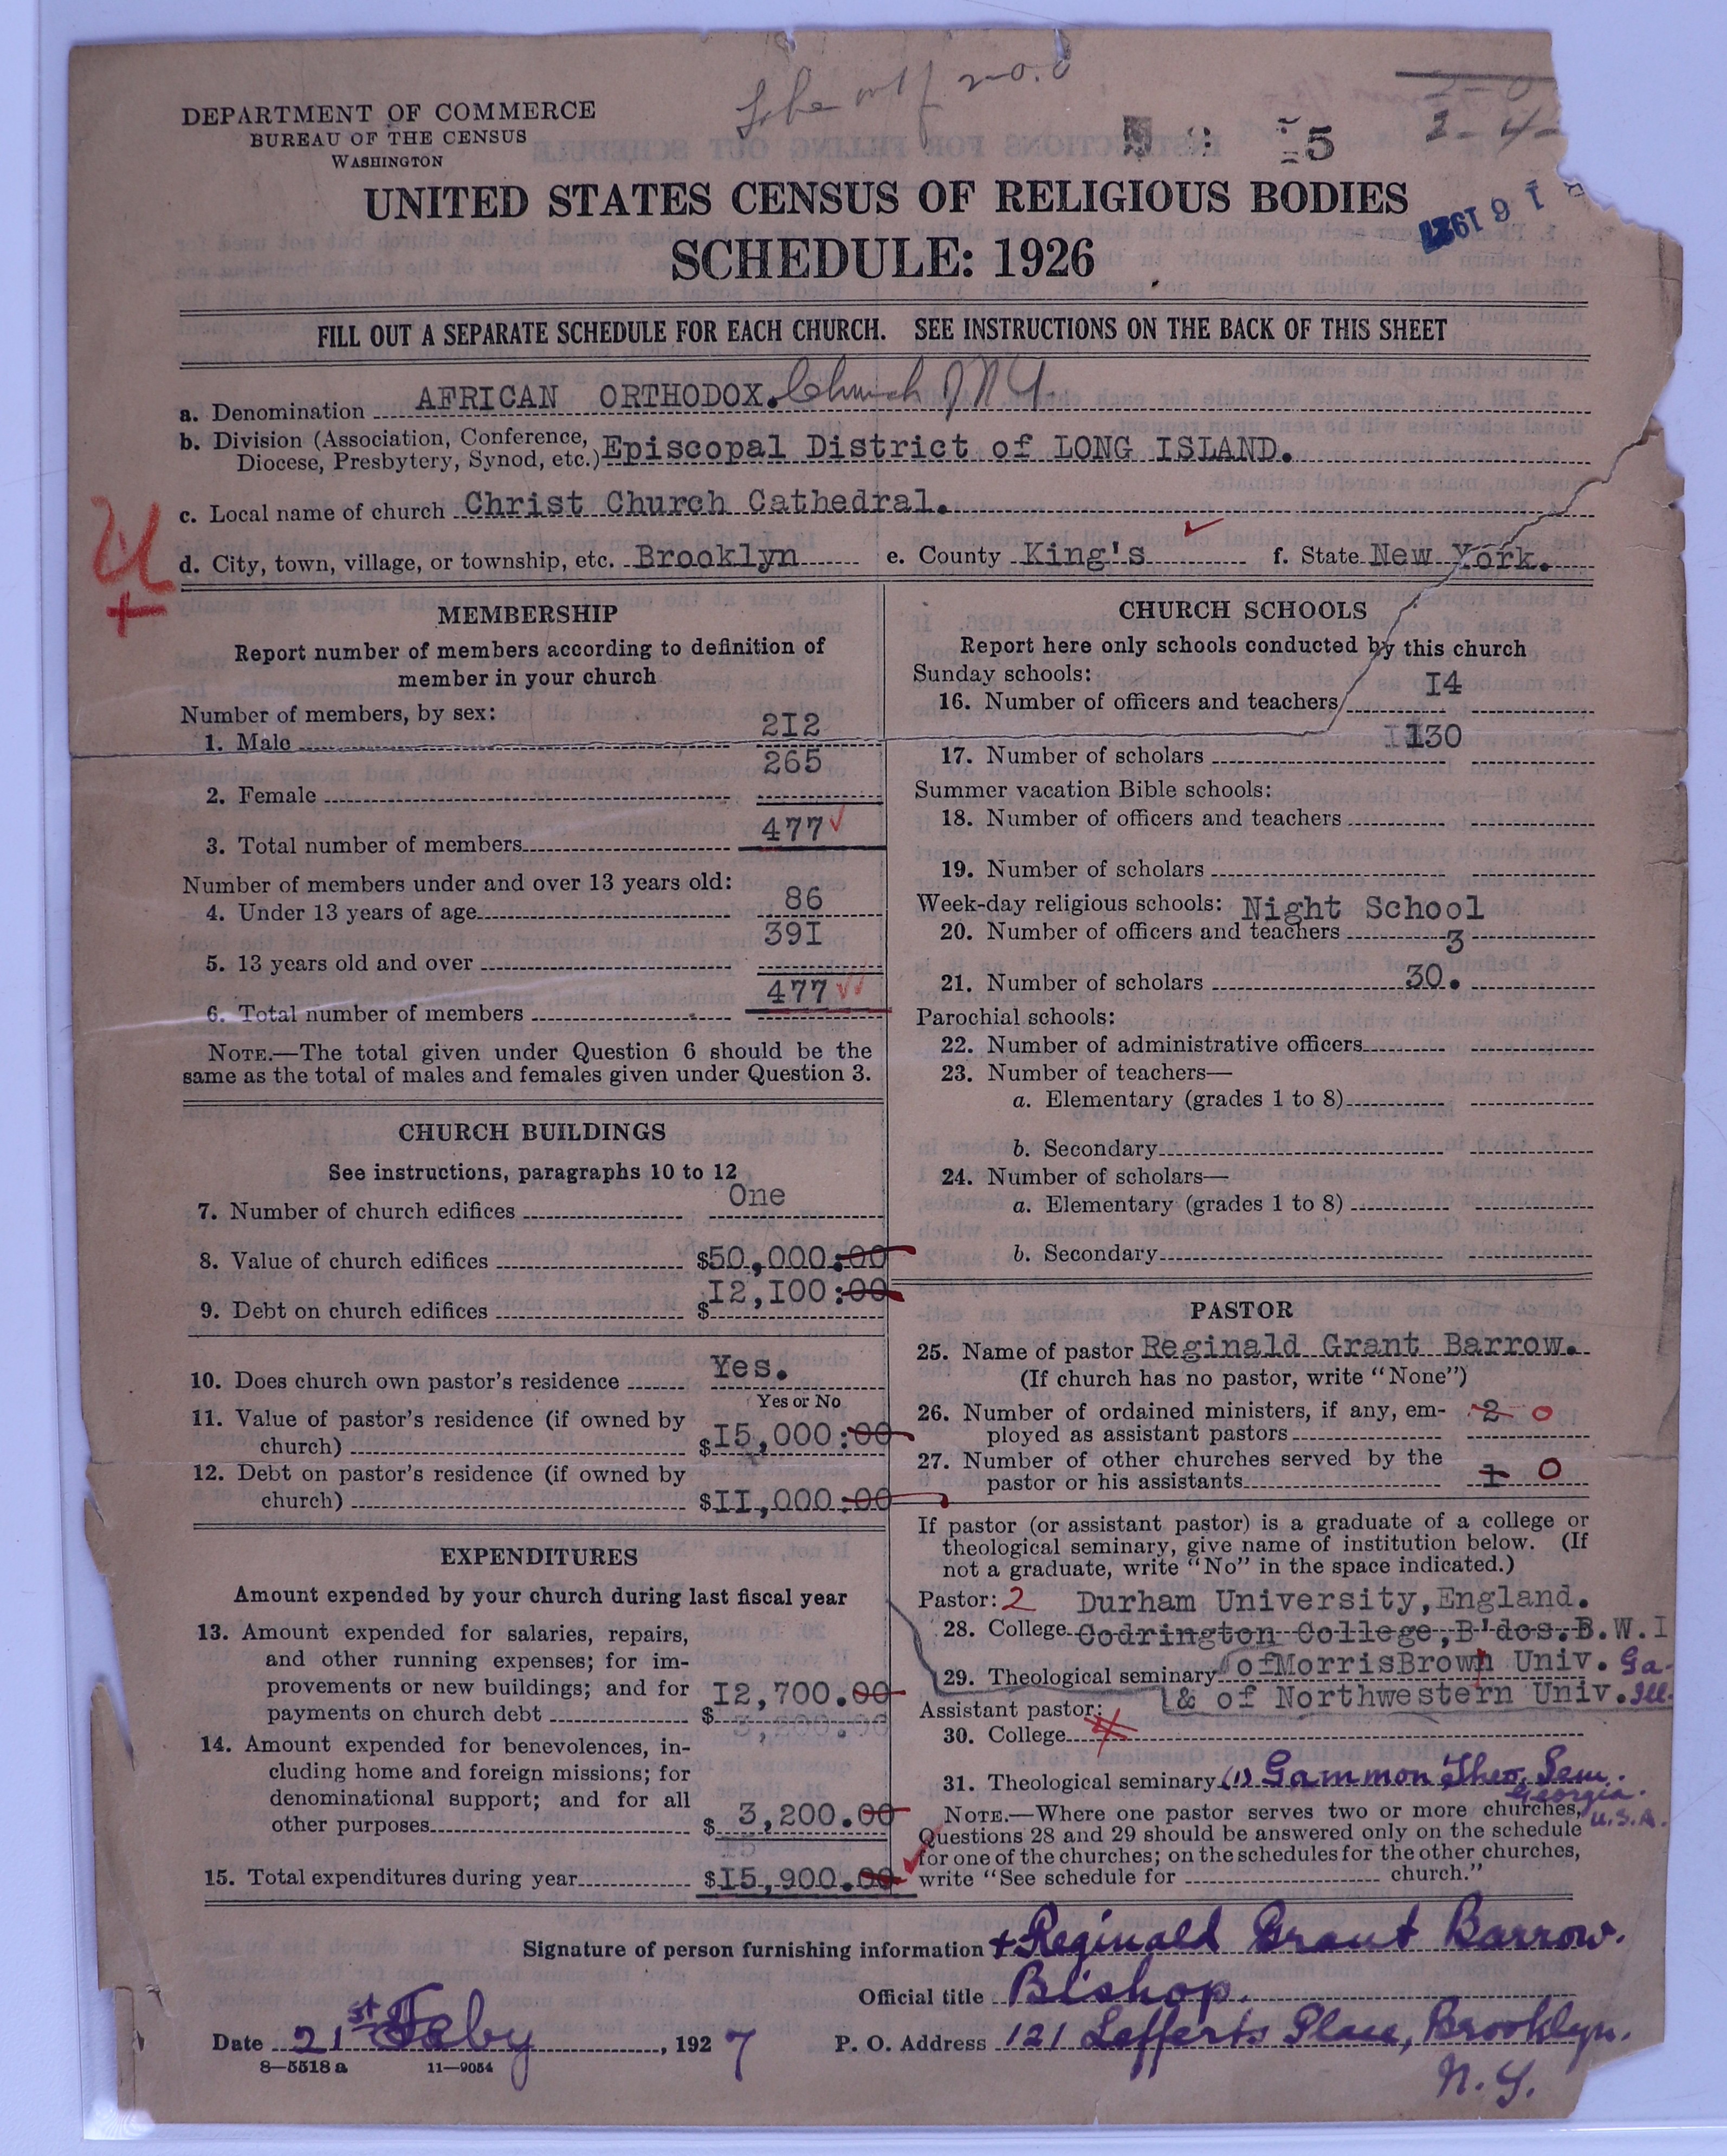 DEPARTMENT OF COMMERCE
BUREAU OF THE CENSUS
WASHINGTON
5
2-4-
UNITED STATES CENSUS OF RELIGIOUS BODIES
SCHEDULE: 1926
FILL OUT A SEPARATE SCHEDULE FOR EACH CHURCH. SEE INSTRUCTIONS ON THE BACK OF THIS SHEET
a. Denomination AFRICAN ORTHODOX. Church of N Y.
b. Division (Association, Conference, Diocese, Presbytery, Synod, etc.) Episcopal District of LONG ISLAND.
c. Local name of church Christ Church Cathedral.
d. City, town, village, or township, etc. Brooklyn e. County King's f. State New York.
U
+
MEMBERSHIP
Report number of members according to definition of
member in your church
Number of members, by sex:
1. Male 212
2. Female 265
3. Total number of members 477
Number of members under and over 13 years old:
4. Under 13 years of age 86
5. 13 years old and over 391
6. Total number of members 477
NOTE.—The total given under Question 6 should be the
same as the total of males and females given under Question 3.
CHURCH BUILDINGS
See instructions, paragraphs 10 to 12
7. Number of church edifices One
8. Value of church edifices $50,000:00
9. Debt on church edifices $12,100:00
10. Does church own pastor's residence Yes.
Yes or No
11. Value of pastor's residence (if owned by
church) $15,000:00
12. Debt on pastor's residence (if owned by
church) $11,000:00
EXPENDITURES
Amount expended by your church during last fiscal year
13. Amount expended for salaries, repairs,
and other running expenses; for im-
provements or new buildings; and for
payments on church debt $12,700.00
14. Amount expended for benevolences, in-
cluding home and foreign missions; for
denominational support; and for all
other purposes $3,200.00
15. Total expenditures during year $15,900.00
CHURCH SCHOOLS
Report here only schools conducted by this church
Sunday schools:
16. Number of officers and teachers 14
17. Number of scholars 130
Summer vacation Bible schools:
18. Number of officers and teachers
19. Number of scholars
Week-day religious schools: Night School
20. Number of officers and teachers 3
21. Number of scholars 30.
Parochial schools:
22. Number of administrative officers
23. Number of teachers—
a. Elementary (grades 1 to 8)
b. Secondary
24. Number of scholars—
a. Elementary (grades 1 to 8)
b. Secondary
PASTOR
25. Name of pastor Reginald Grant Barrow.
(If church has no pastor, write "None")
26. Number of ordained ministers, if any, em-
ployed as assistant pastors 2 0
27. Number of other churches served by the
pastor or his assistants 1 0
If pastor (or assistant pastor) is a graduate of a college or
theological seminary, give name of institution below. (If
not a graduate, write "No" in the space indicated.)
Pastor: 2 Durham University, England.
28. College Codrington College, B'dos. B.W.I
29. Theological seminary of MorrisBrown Univ. Ga.
& of Northwestern Univ. Ill.
Assistant pastor:
30. College
31. Theological seminary (1) Gammon Theo. Sem.
Georgia.
U.S.A.
NOTE.—Where one pastor serves two or more churches,
Questions 28 and 29 should be answered only on the schedule
for one of the churches; on the schedules for the other churches,
write "See schedule for church."
Signature of person furnishing information + Reginald Grant Barrow.
Official title Bishop.
Date 21st Feby, 1927 P. O. Address 121 Lefferts Place, Brooklyn.
N.Y.
8—5518 a 11—9054